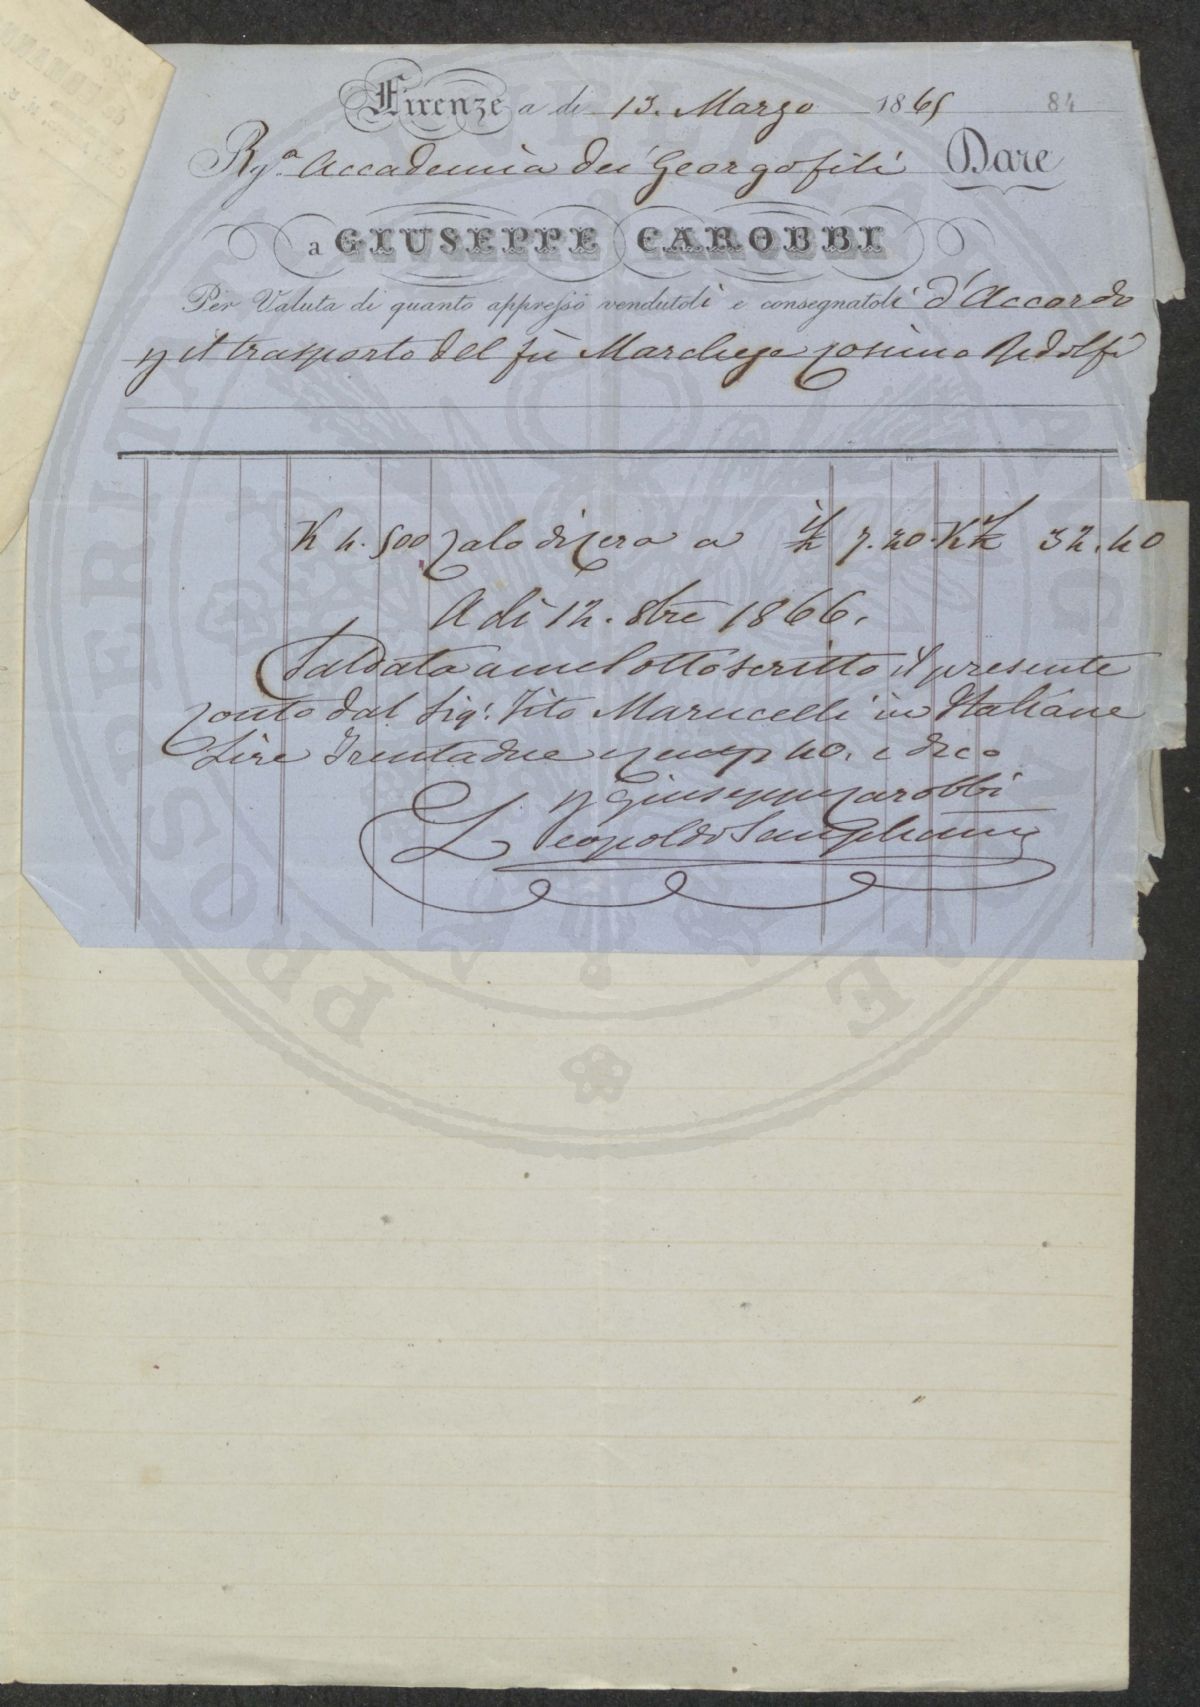 Firenze a di 13. Marzo 1865 84
Rya. Accademia dei Georgofili Dare
a GIUSEPPE CAROBBI
Per Valuta di quanto appresso vendutoli e consegnatoli d'Accordo
p il trasporto del fù Marchese Cosimo Ridolfi
K 4. 500 Calo di Cera a 7.20 K 32.40
A di 12. 8bre 1866.
Saldato a me sottoscritto il presente
Conto dal Sigr. Tito Marucelli in Italiane
Lire Trentadue e 40. e dico
p Giuseppe Carobbi
Leopoldo
PROSPERITATI PUBLICAE AUGENDAE